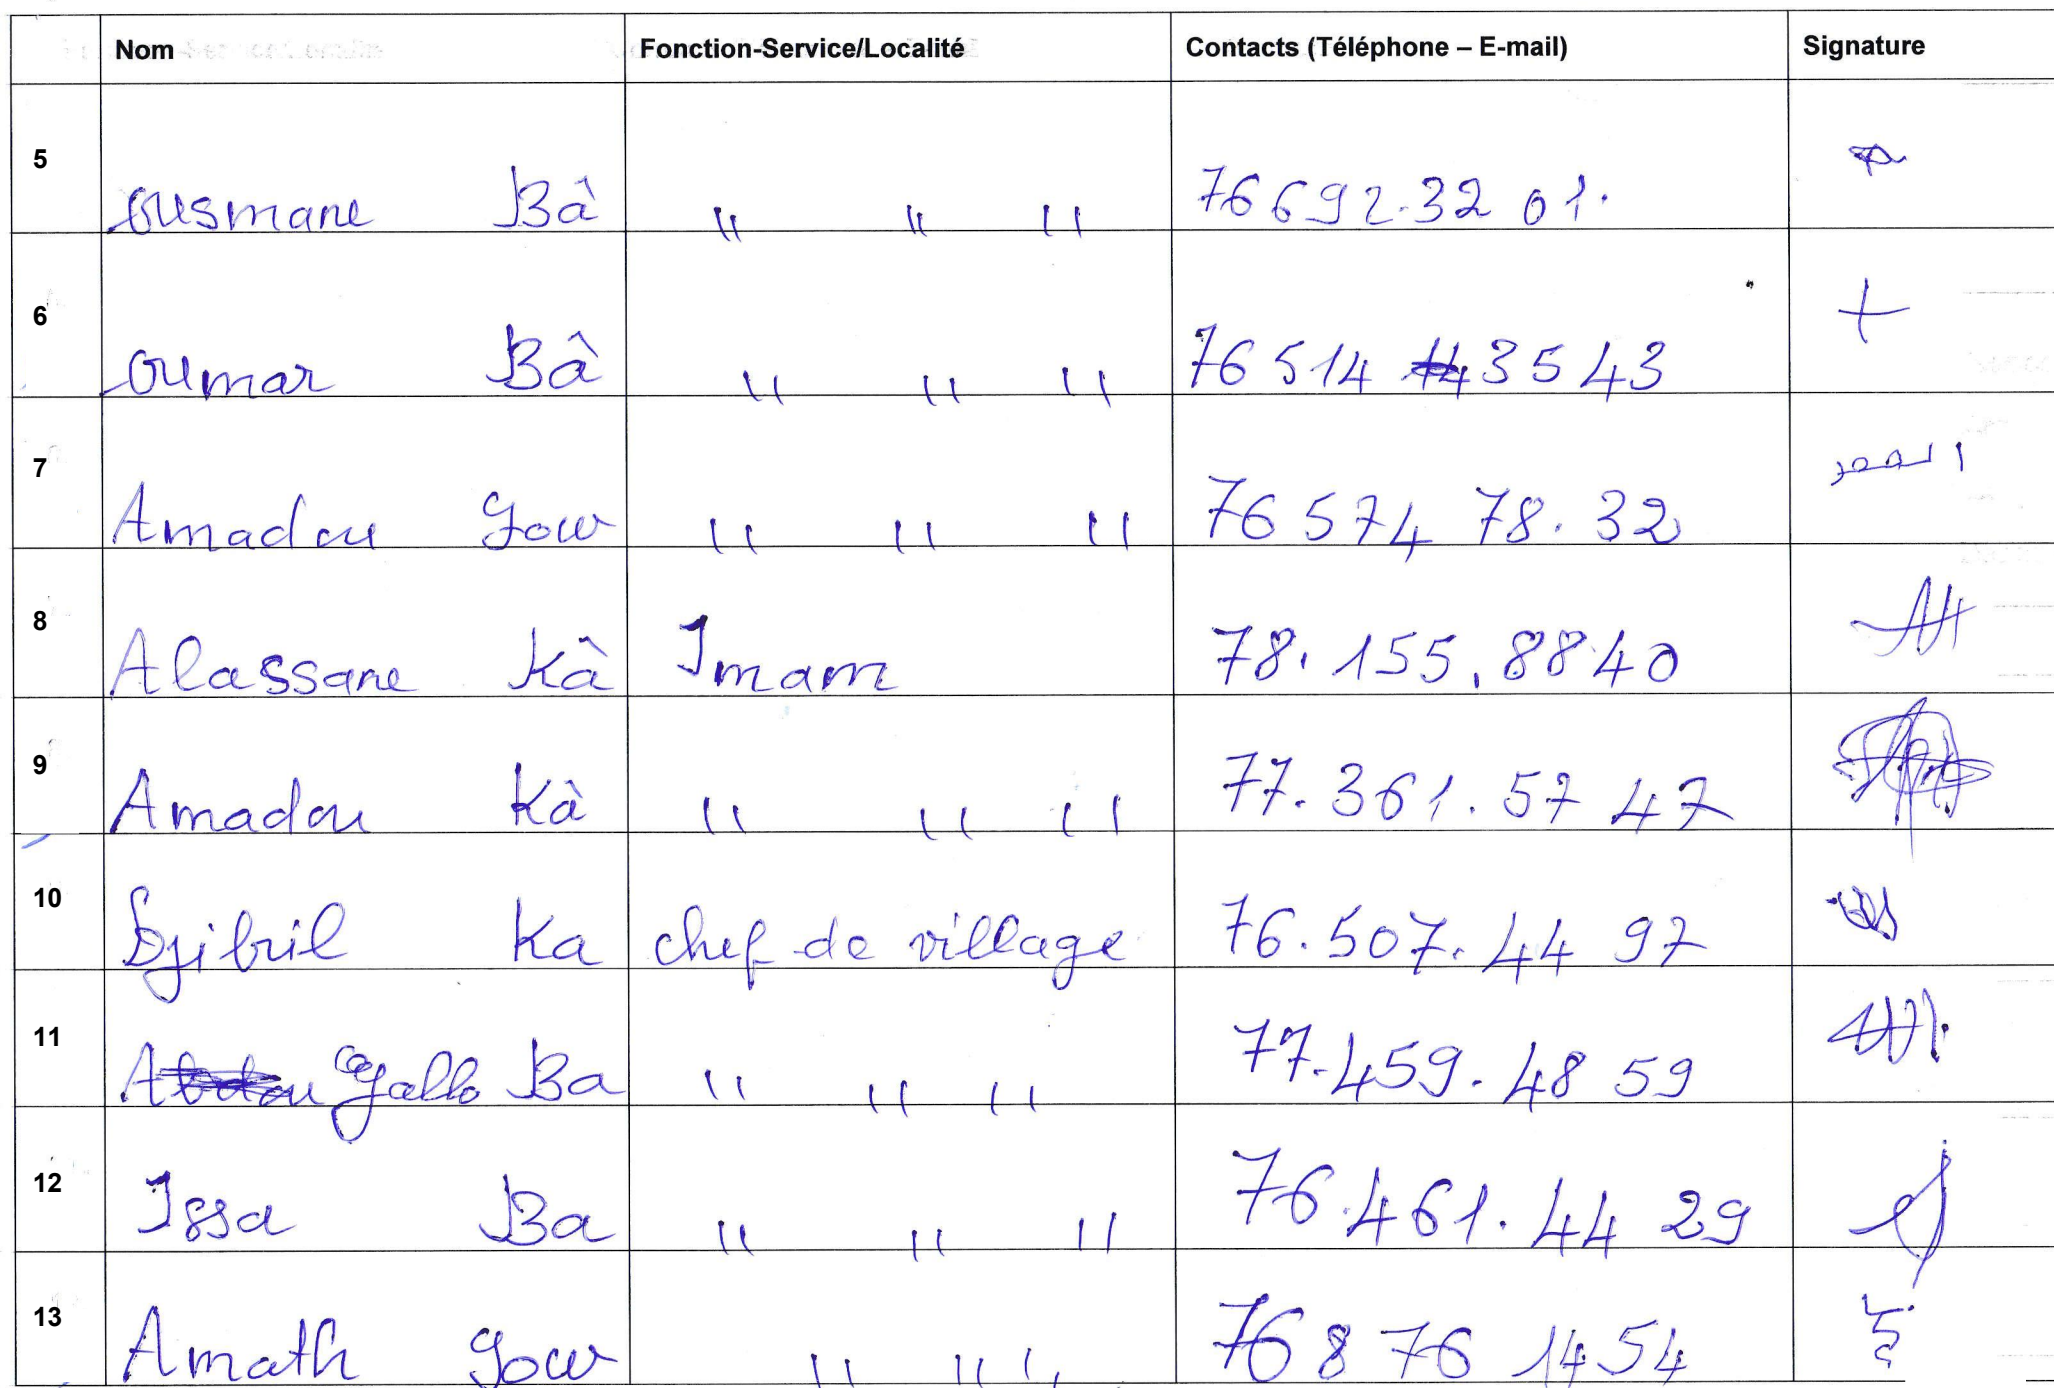 Nom Fonction-Service/Localité Contacts (Téléphone – E-mail) Signature
5 Ousmane Bâ " " " 76 692.32 01.
6 Oumar Bâ " " " 76 514 35 43
7 Amadou Gow " " " 76 574 78.32
8 Alassane Kâ Imam 78.155.88 40
9 Amadou Kà " " " 77.361.57 47
10 Djibril Ka chef de village 76.507.44 97
11 Gallo Ba " " " 77.459.48 59
12 Issa Ba " " " 76.461.44 29
13 Amath Gow " " " 76 876 14 54